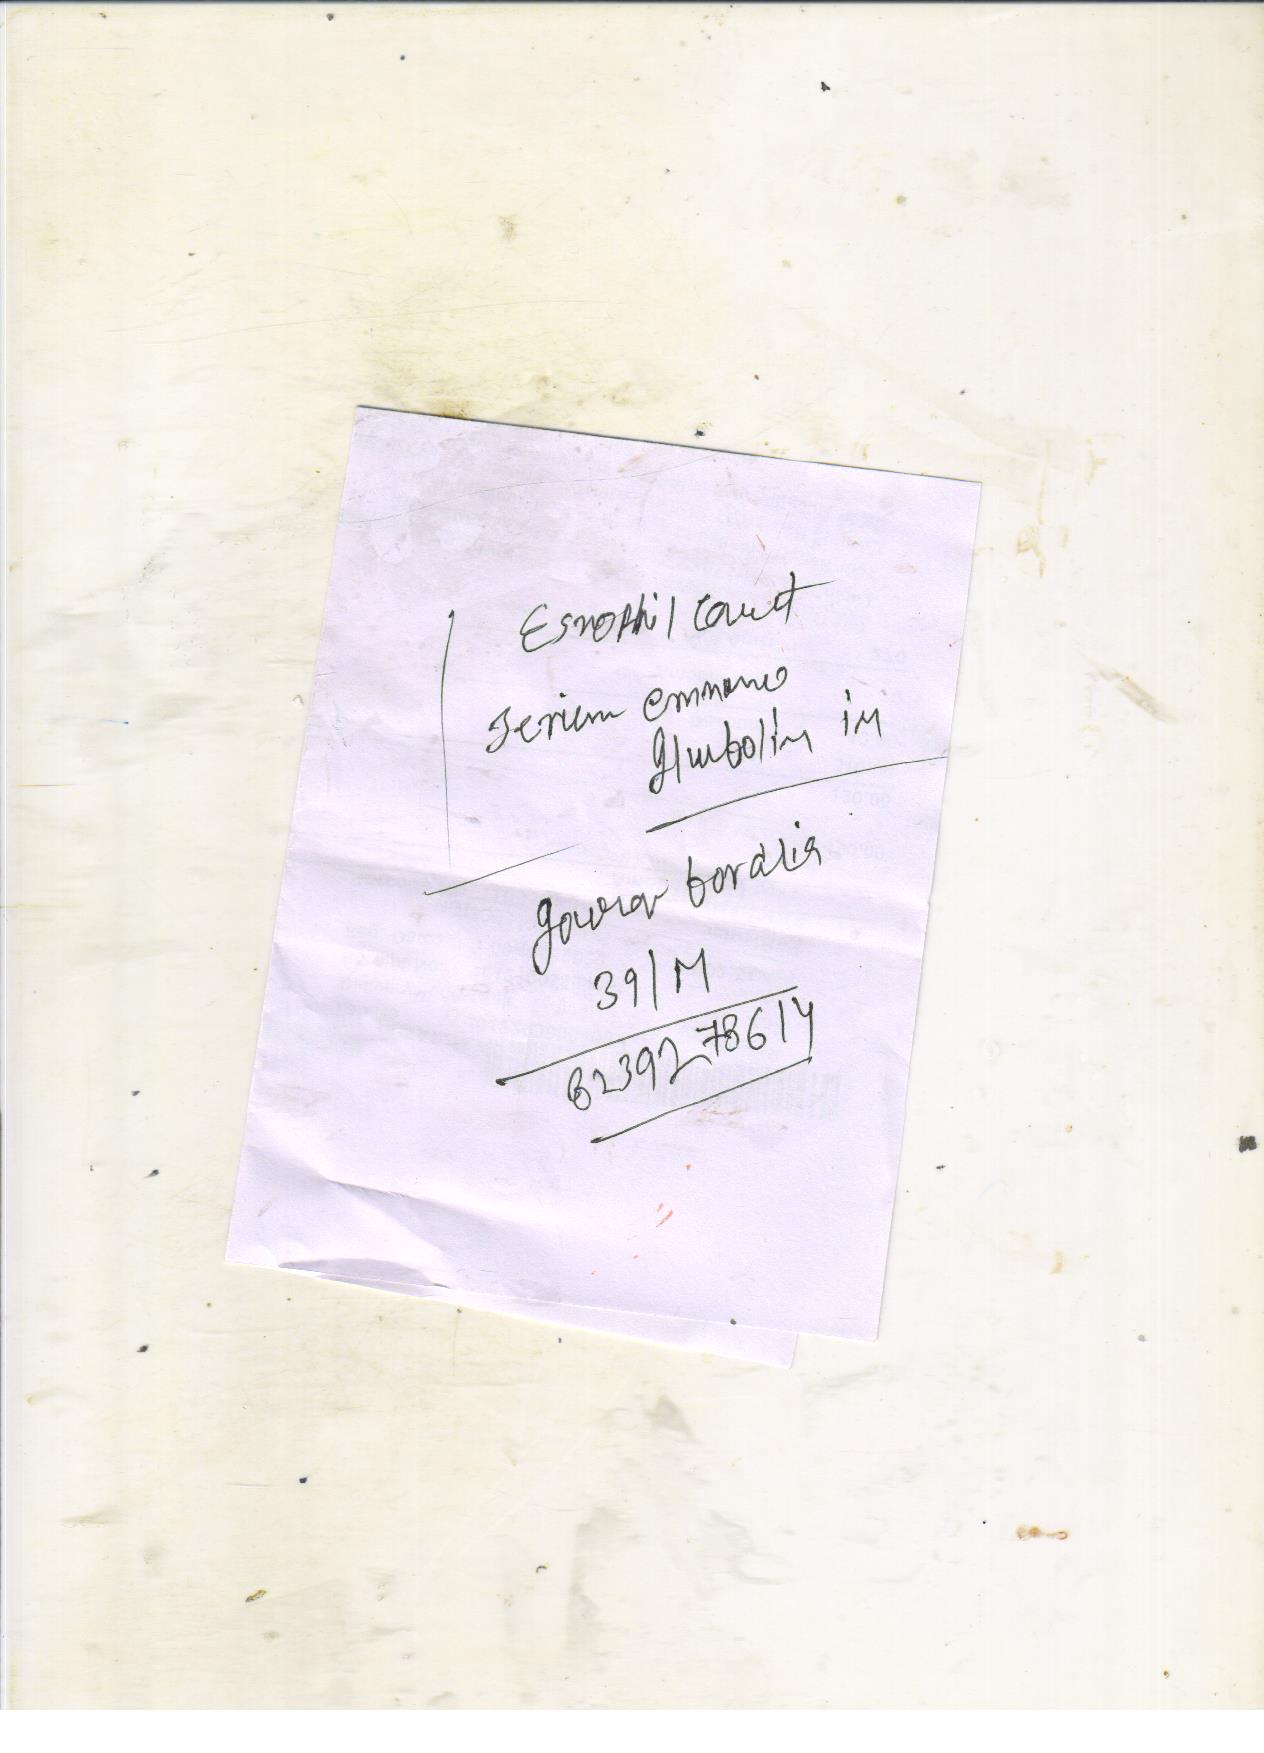 Esnophil Count
Serium emmono
glmbolin in
gourav bordlia
39/M
6239278614